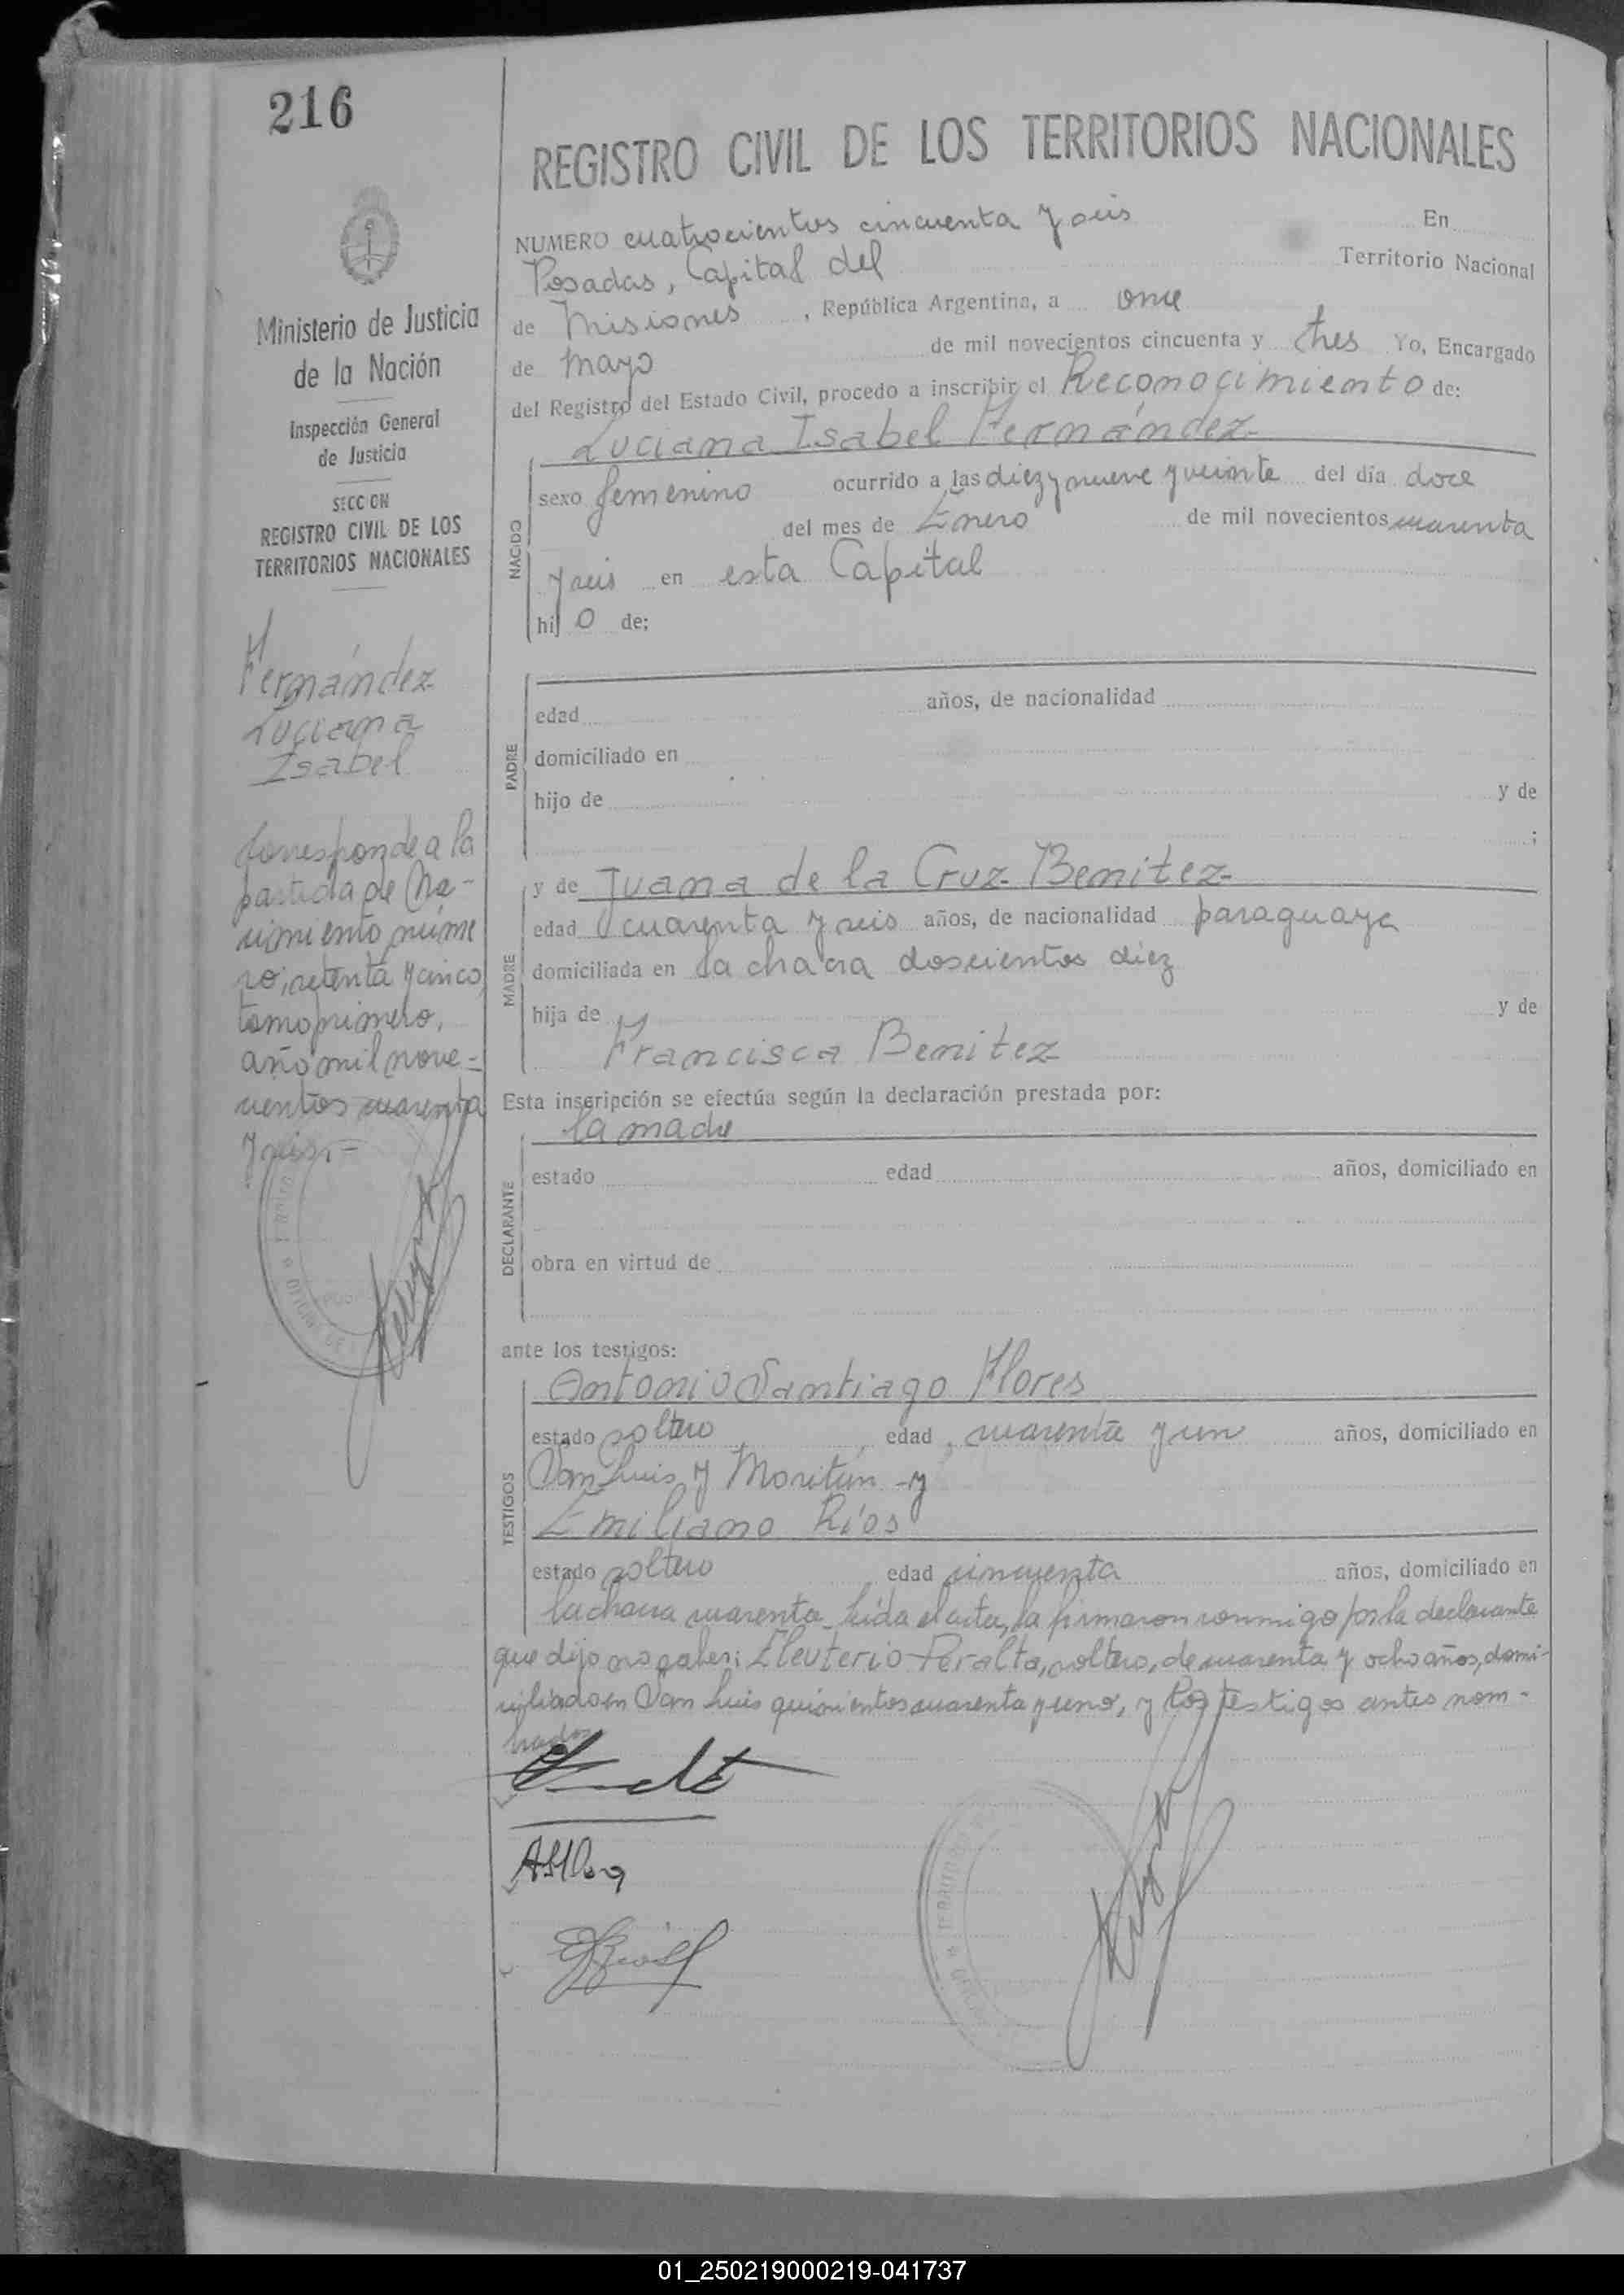 216
REGISTRO CIVIL DE LOS TERRITORIOS NACIONALES
Ministerio de Justicia
de la Nación
Inspección General
de Justicia
SECCION
REGISTRO CIVIL DE LOS
TERRITORIOS NACIONALES
Fernández
Luciana
Isabel
Corresponde a la
partida de Na-
cimiento núme
ro, setenta y cinco,
tomo primero,
año mil nove-
cientos cuarenta
y seis.-
NUMERO cuatrocientos cincuenta y seis En
Posadas, Capital del Territorio Nacional
de Misiones, República Argentina, a once
de mayo de mil novecientos cincuenta y tres Yo, Encargado
del Registro del Estado Civil, procedo a inscribir el Reconocimiento de:
Luciana Isabel Fernández
NACIDO
sexo femenino ocurrido a las diez y nueve y veinte del día doce
del mes de Enero de mil novecientos cuarenta
y seis en esta Capital
hij o de;
PADRE
edad años, de nacionalidad
domiciliado en
hijo de y de
;
MADRE
y de Juana de la Cruz Benitez
edad cuarenta y seis años, de nacionalidad paraguaya
domiciliada en la chacra doscientos diez
hija de y de
Francisca Benitez
Esta inscripción se efectúa según la declaración prestada por:
la madre
DECLARANTE
estado edad años, domiciliado en
obra en virtud de
ante los testigos:
TESTIGOS
Antonio Santiago Flores
estado soltero, edad cuarenta y un años, domiciliado en
San Luis y Moritán - y
Emiliano Ríos
estado soltero, edad cincuenta años, domiciliado en
la chacra cuarenta. Leída el acta, la firmaron conmigo por la declarante
que dijo no saber; Eleuterio Peralta, soltero, de cuarenta y ocho años, domi-
ciliado en San Luis quinientos cuarenta y uno, y los testigos antes nom-
brados
01_250219000219-041737